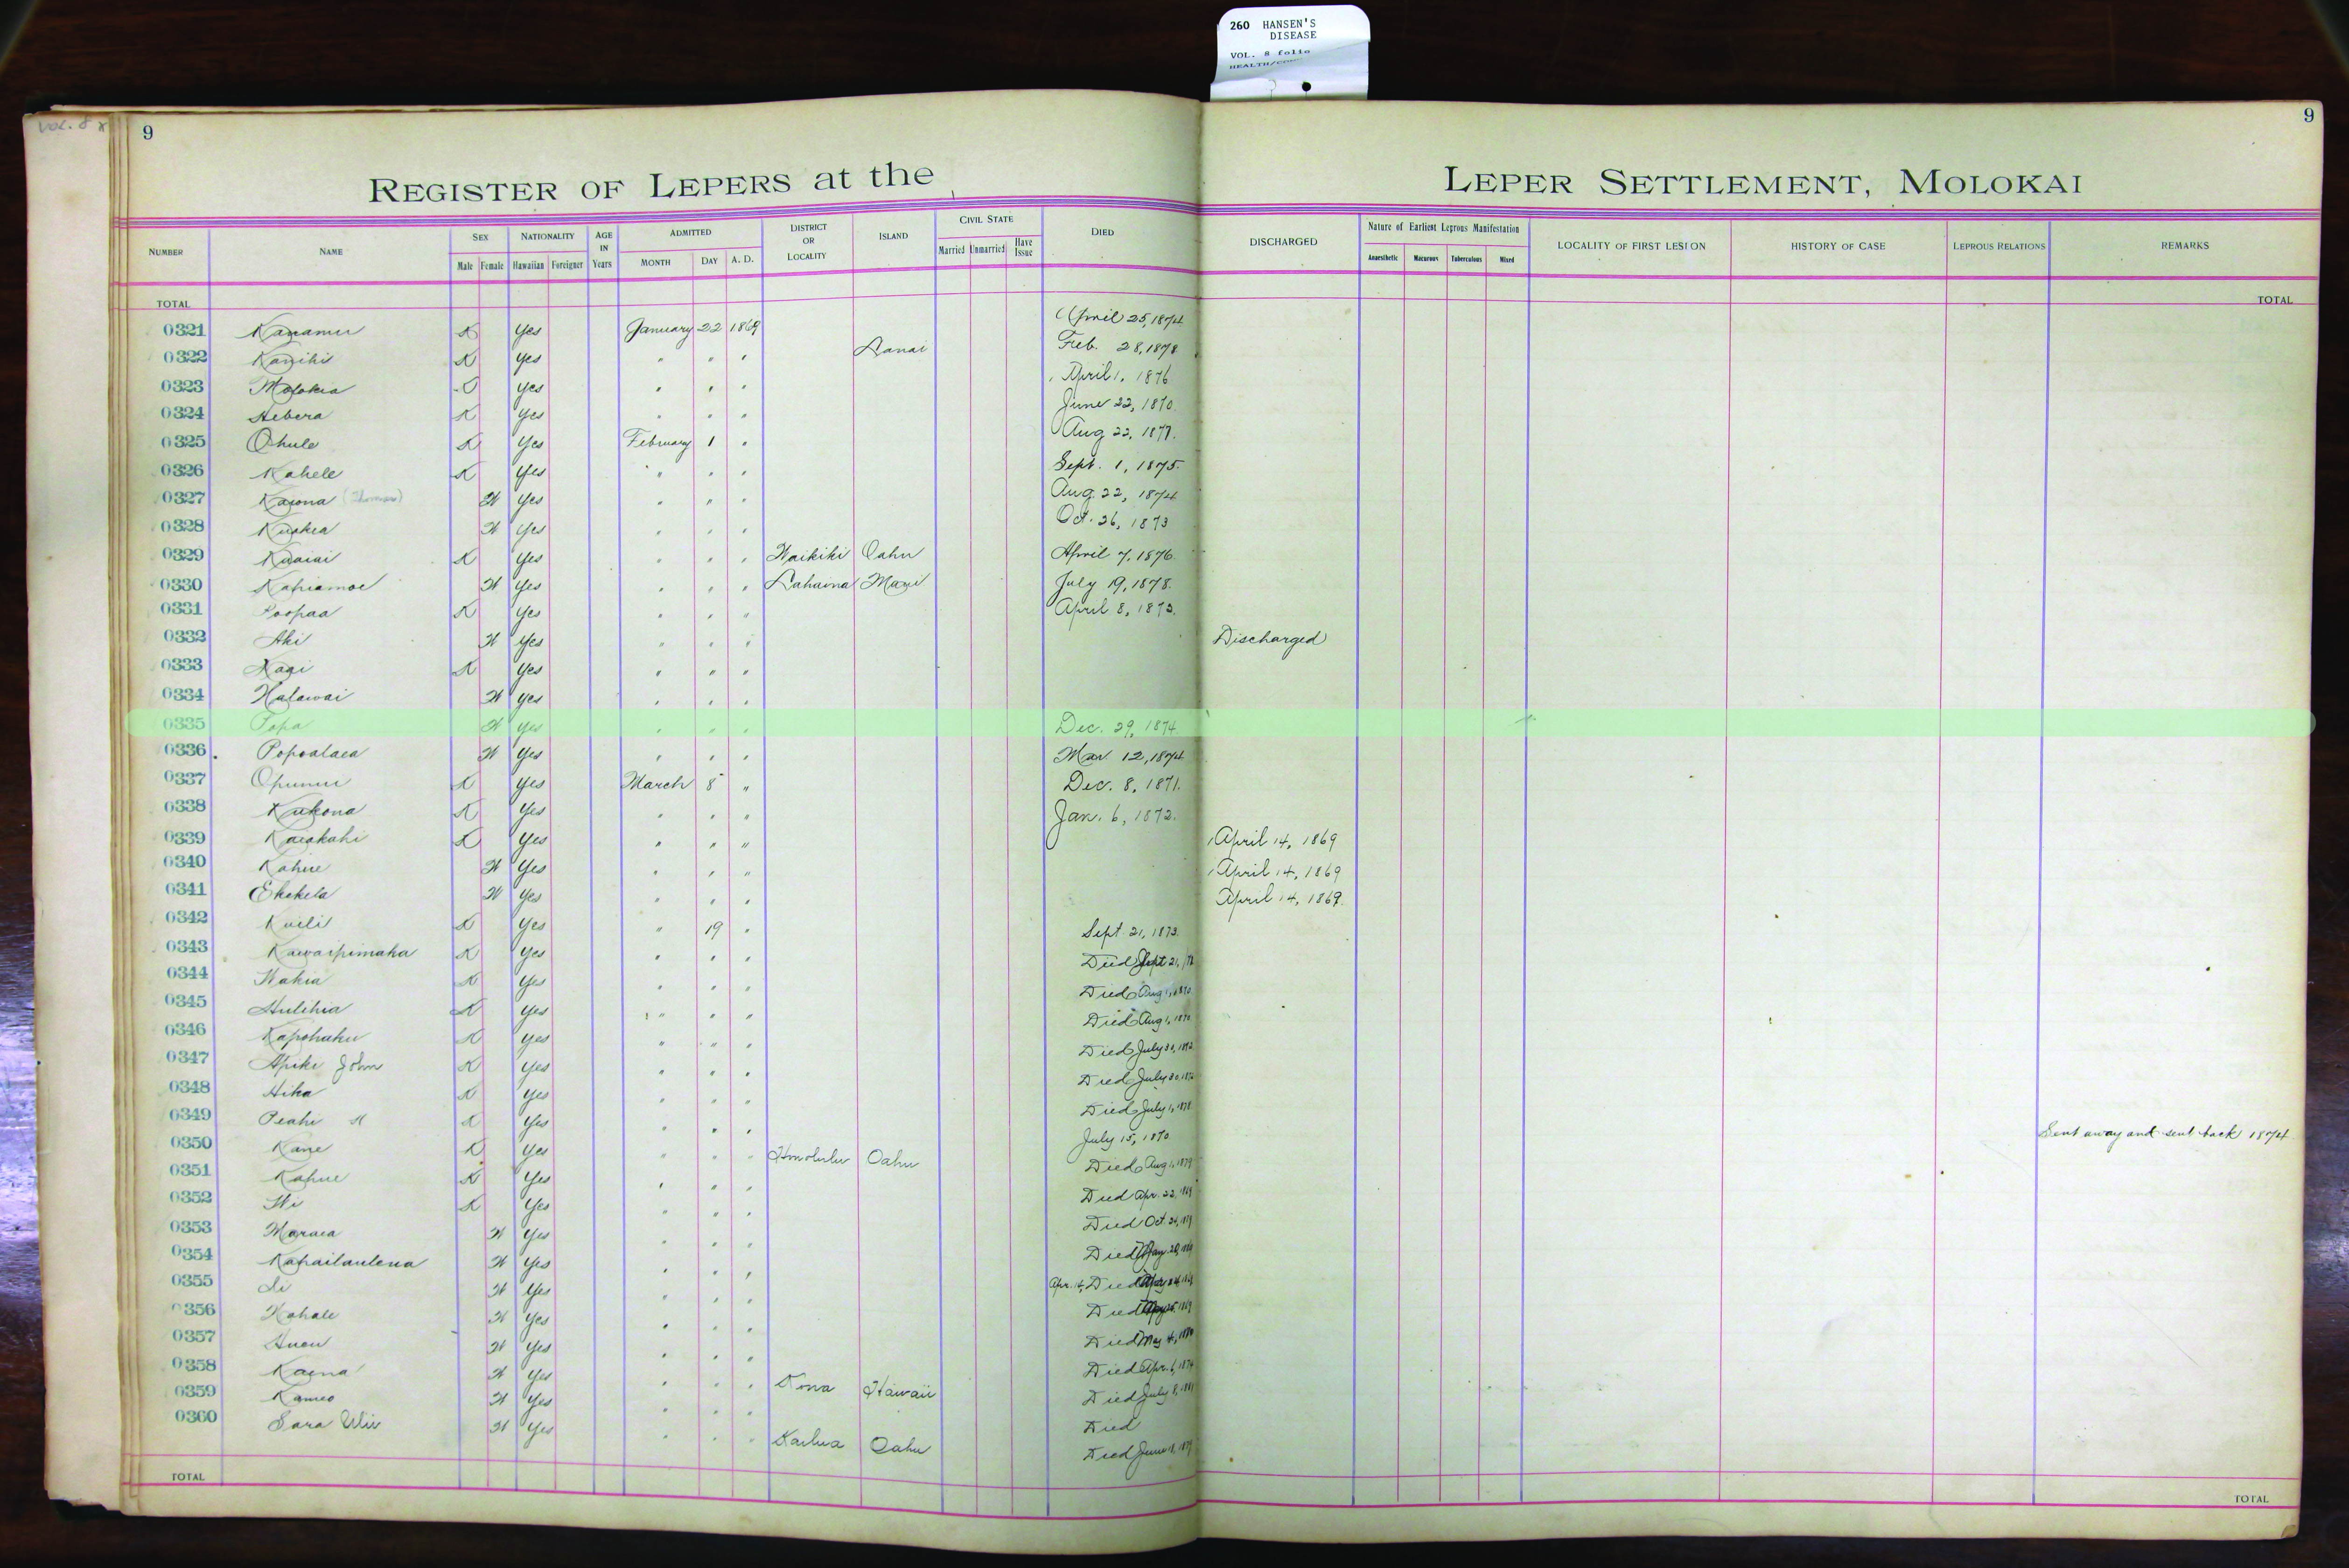 260 HANSEN'S
DISEASE
VOL. 8 folio
VOL. 8
9
9
REGISTER OF LEPERS at the LEPER SETTLEMENT, MOLOKAI
NUMBER NAME SEX Male Female NATIONALITY Hawaiian Foreigner AGE IN Years ADMITTED MONTH DAY A. D. DISTRICT OR LOCALITY ISLAND CIVIL STATE Married Unmarried Have Issue DIED DISCHARGED Nature of Earliest Leprous Manifestation Anaesthetic Macurous Tuberculous Mixed LOCALITY OF FIRST LESION HISTORY OF CASE LEPROUS RELATIONS REMARKS
TOTAL TOTAL
0321 Kanamu K Yes January 22 1869 April 25, 1874
0322 Kanihi K Yes " " " Lanai Feb. 28, 1878
0323 Molokia K Yes " " " April 1, 1876
0324 Hebera K Yes " " " June 22, 1870
0325 Ohule K Yes February 1 " Aug 22, 1877
0326 Kahele K Yes " " " Sept. 1, 1875
0327 Kaiona (Thomas) W Yes " " " Aug. 22, 1874
0328 W Yes " " " Oct. 26, 1873
0329 Kuaiai K Yes " " " Waikiki Oahu April 7, 1876
0330 Kapiamoe W Yes " " " Lahaina Maui July 19, 1878
0331 Poopaa K Yes " " " April 8, 1873
0332 Aki W Yes " " " Discharged
0333 K Yes " " "
0334 Halawai W Yes " " "
0335 Popa W Yes " " " Dec. 29, 1874
0336 Popoalaea W Yes " " " Mar 12, 1874
0337 Opunui K Yes March 8 " Dec. 8, 1871
0338 Kukona K Yes " " " Jan. 6, 1872
0339 Kaiakahi K Yes " " " April 14, 1869
0340 Kahue W Yes " " " April 14, 1869
0341 Ekekela W Yes " " " April 14, 1869
0342 Kuili K Yes " 19 " Sept. 21, 1873
0343 Kawaipimaka K Yes " " " Died Sept 21,
0344 Wahia K Yes " " " Died Aug 1, 1870
0345 Hulihia K Yes " " " Died Aug 1, 1870
0346 Kapohaku K Yes " " " Died July 30, 1872
0347 Apiki John K Yes " " " Died July 30, 1872
0348 Hika K Yes " " " Died July 1, 1878
0349 Peahi K Yes " " " July 15, 1870 Sent away and sent back 1874
0350 Kane K Yes " " " Honolulu Oahu Died Aug 1, 1879
0351 Kahue K Yes " " " Died Apr. 22, 1869
0352 K Yes " " " Died Oct. 24,
0353 Maraea W Yes " " " Died
0354 Kahailaulena W Yes " " " Apr. 14, Died
0355 Li W Yes " " " Died
0356 Kahale W Yes " " " Died May 4,
0357 W Yes " " " Died Apr. 6, 1874
0358 Kaena W Yes " " " Kona Hawaii Died July 8, 1881
0359 Kameo W Yes " " " Died
0360 Sara W Yes " " " Kailua Oahu Died June
TOTAL TOTAL